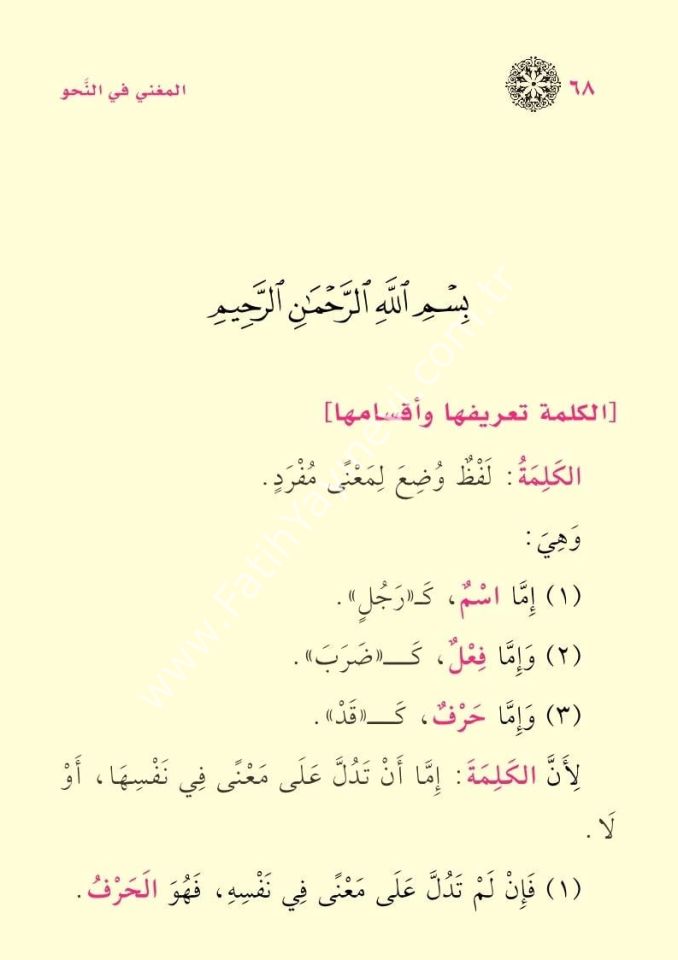 ٦٨ المغني في النَّحو
بِسْمِ ٱللَّهِ ٱلرَّحْمَٰنِ ٱلرَّحِيمِ
[الكلمة تعريفها وأقسامها]
الكَلِمَةُ: لَفْظٌ وُضِعَ لِمَعْنًى مُفْرَدٍ.
وَهِيَ:
(١) إِمَّا اسْمٌ، كَـ«رَجُلٍ».
(٢) وَإِمَّا فِعْلٌ، كَـــ«ضَرَبَ».
(٣) وَإِمَّا حَرْفٌ، كَـــ«قَدْ».
لِأَنَّ الكَلِمَةَ: إِمَّا أَنْ تَدُلَّ عَلَى مَعْنًى فِي نَفْسِهَا، أَوْ
لَا.
(١) فَإِنْ لَمْ تَدُلَّ عَلَى مَعْنًى فِي نَفْسِهِ، فَهُوَ الحَرْفُ.
www.FatihYayinevi.com.tr